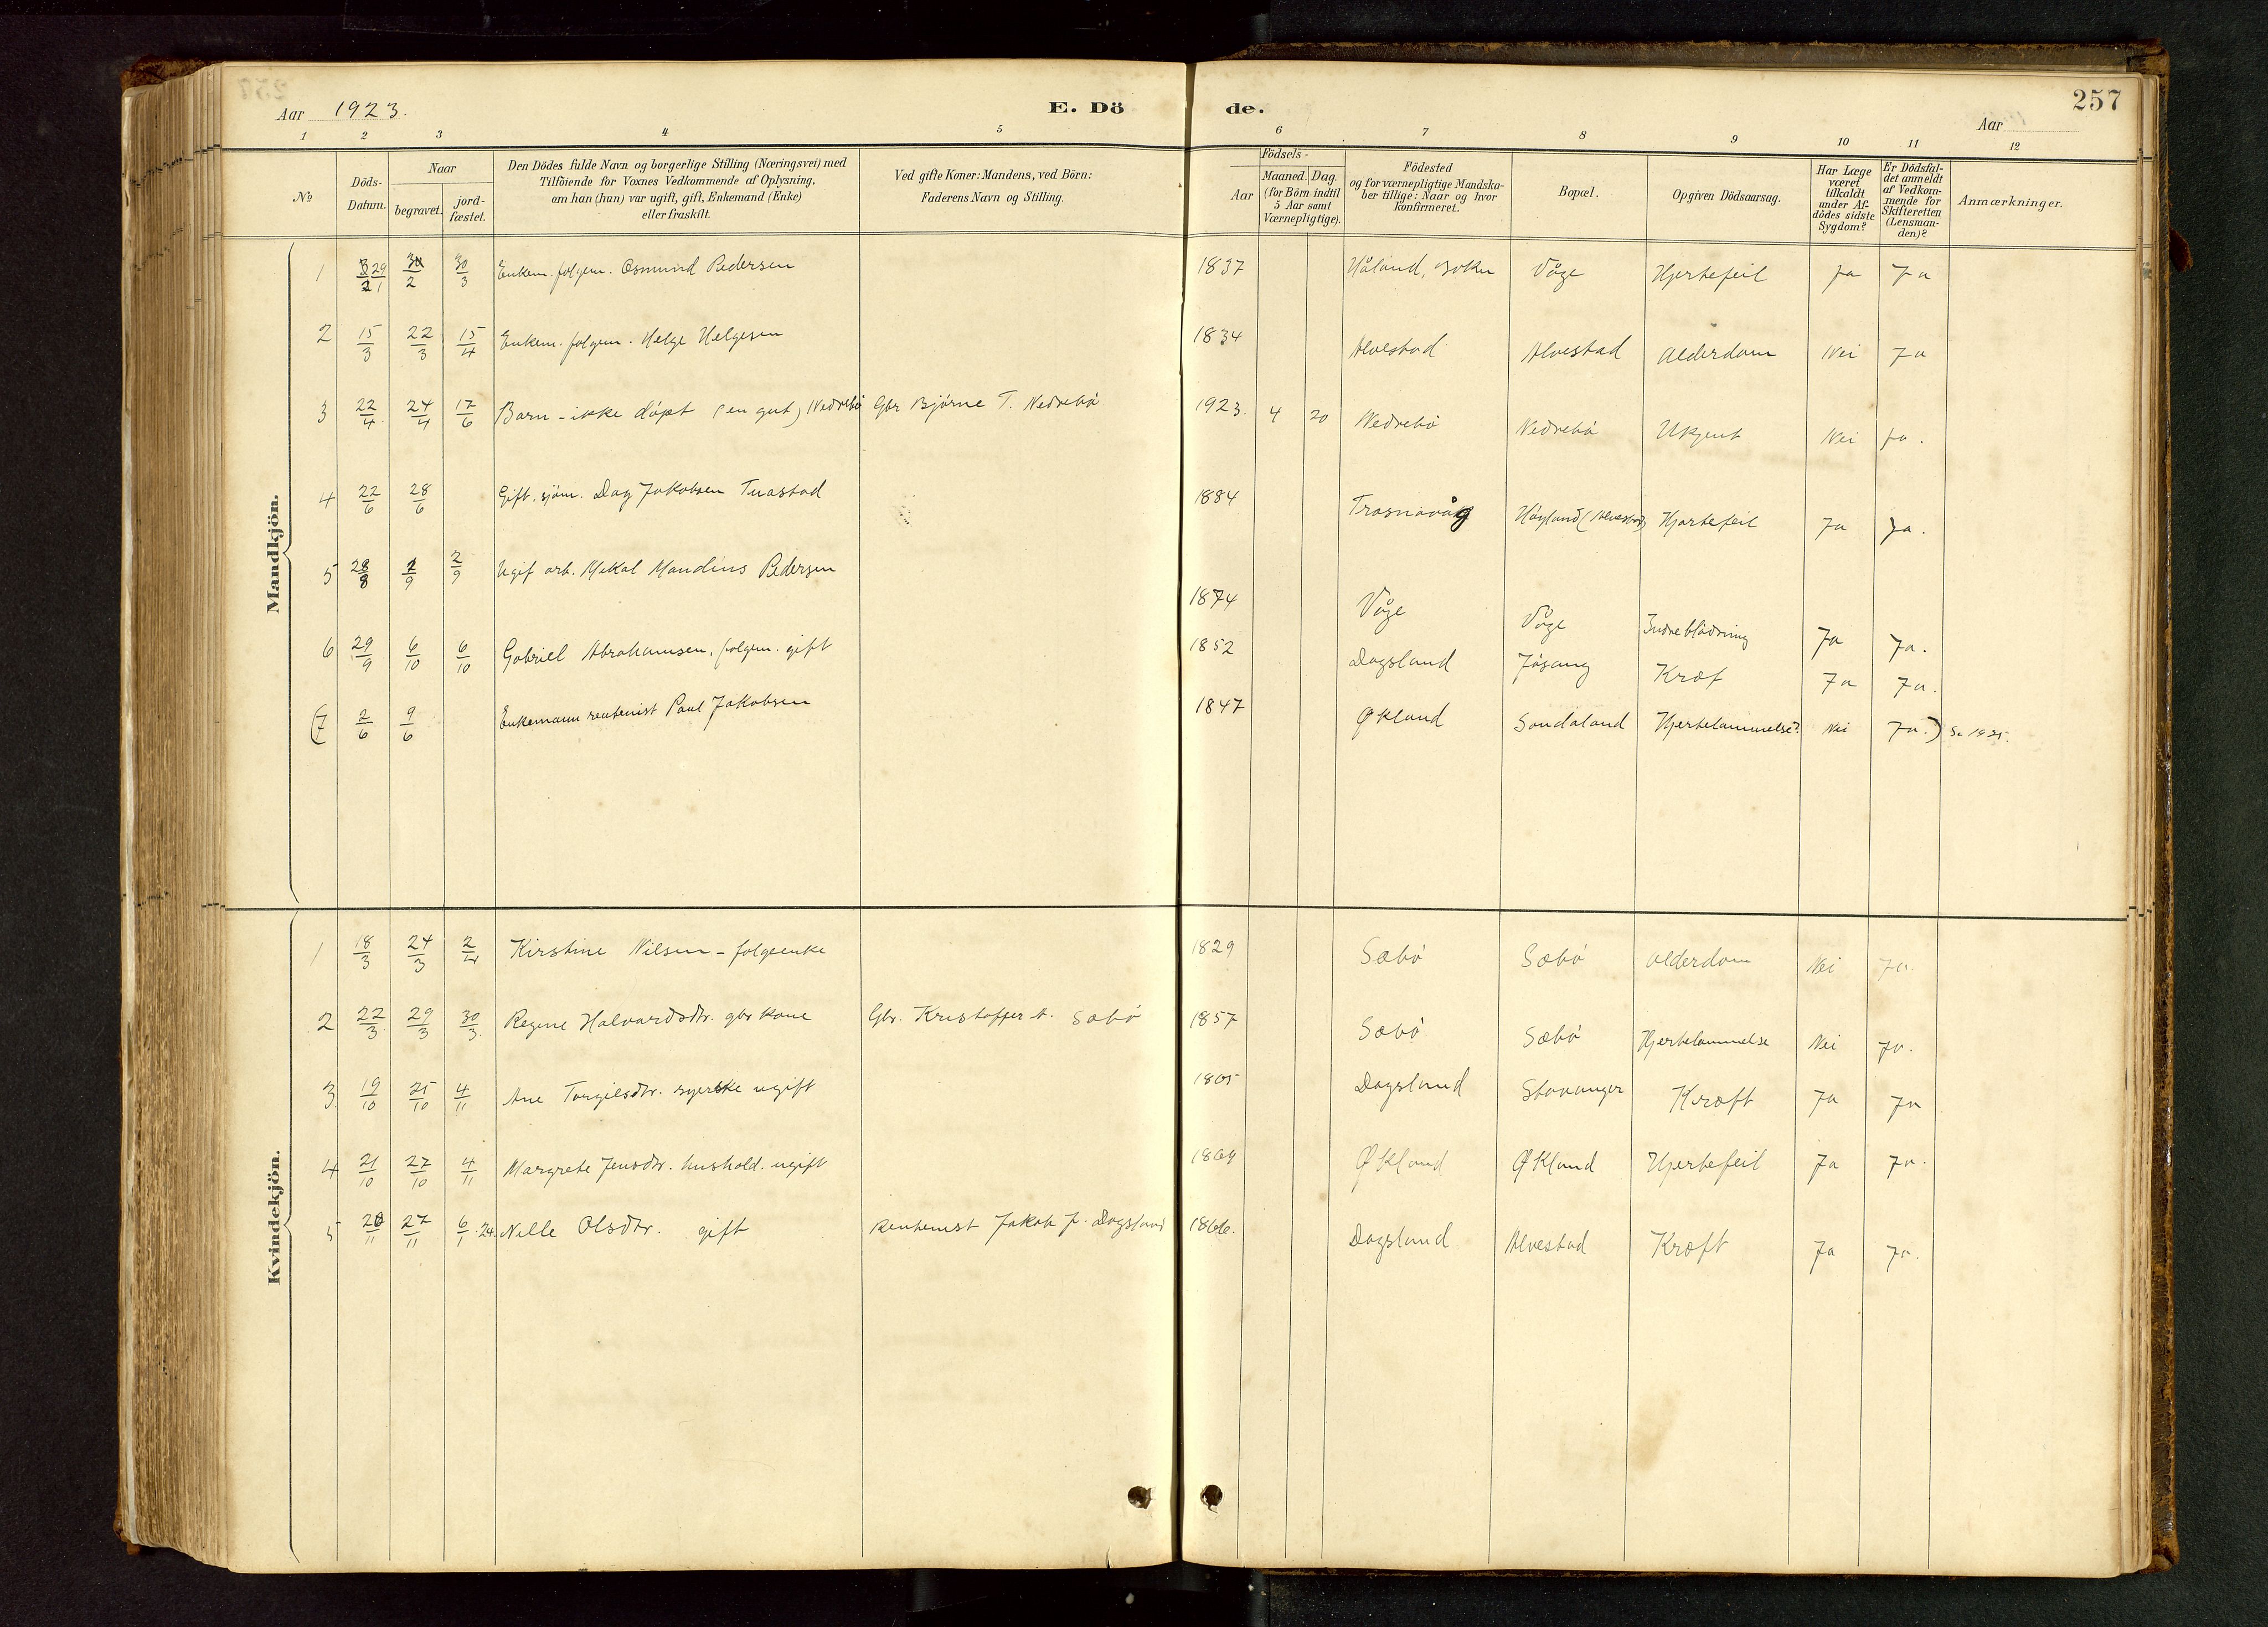 257
Aar 1923. E. Dö de. Aar
1 2 3 4 5 6 7 8 9 10 11 12
No
Döds-Datum.
Naar
begravet.
jord-fæstet.
Den Dödes fulde Navn og borgerlige Stilling (Næringsvei) med
Tilföiende for Voxnes Vedkommende af Oplysning,
om han (hun) var ugift, gift, Enkemand (Enke)
eller fraskilt.
Ved gifte Koner: Mandens, ved Börn:
Faderens Navn og Stilling.
Födsels-
Aar
Maaned. Dag.
(for Börn indtil
5 Aar samt
Værnepligtige).
Födested
og for værnepligtige Mandska-
ber tillige: Naar og hvor
konfirmeret.
Bopæl.
Opgiven Dödsaarsag.
Har Læge
været
tilkaldt
under Af-
dödes sidste
Sygdom?
Er Dödsfal-
det anmeldt
af Vedkom-
mende for
Skifteretten
(Lensman-
den)?
Anmærkninger.
Mandkjön.
1 29/1 3/2 30/3 Enkem. folgem. Osmund Pedersen 1837 Håland, Bokn Våge Hjertefeil Ja Ja
2 15/3 22/3 15/4 Enkem. folgem. Helge Helgesen 1834 Alvestad Alvestad Alderdom Nei Ja
3 22/4 24/4 17/6 Barn - ikke døpt (en gut) Nedrebø Gbr Bjørne T. Nedrebø 1923. 4 20 Nedrebø Nedrebø Ukjent Nei Ja.
4 22/6 28/6 Gift. sjøm. Dag Jakobsen Tuastad 1884 Trosnavåg Høyland (Alvestad) Hjertefeil Ja Ja.
5 28/8 2/9 2/9 Ugif arb. Mikal Mandius Pedersen 1874 Våge Våge Indreblødning Ja Ja.
6 29/9 6/10 6/10 Gabriel Abrahamsen, folgem. gift 1852 Dagsland Jøsang Kræf Ja Ja.
(7 2/6 9/6 Enkemann rentenist Paul Jakobsen 1847 Økland Sandaland Hjertelammelse? Nei Ja.) Se 1925.
Kvindekjön.
1 18/3 24/3 2/4 Kirstine Nilsen - folgeenke 1829 Sæbø Sæbø Alderdom Nei Ja.
2 22/3 29/3 30/3 Regine Halvardsdtr. gbr kone Gbr. Kristoffer t. Sæbø 1857 Sæbø Sæbø Hjertelammelse Nei Ja.
3. 19/10 25/10 4/11 Ane Torgilsdtr. syerske ugift Dagsland Stavanger Kræft Ja Ja
4 21/10 27/10 4/11 Margrete Jensdtr. hushold. ugift 1864 Økland Økland Hjertefeil Ja Ja.
5 20/11 27/11 6/1 24. Nelle Olsdtr. gift Rentenist Jakob J. Dagsland 1866. Dagsland Alvestad Kræft Ja Ja.